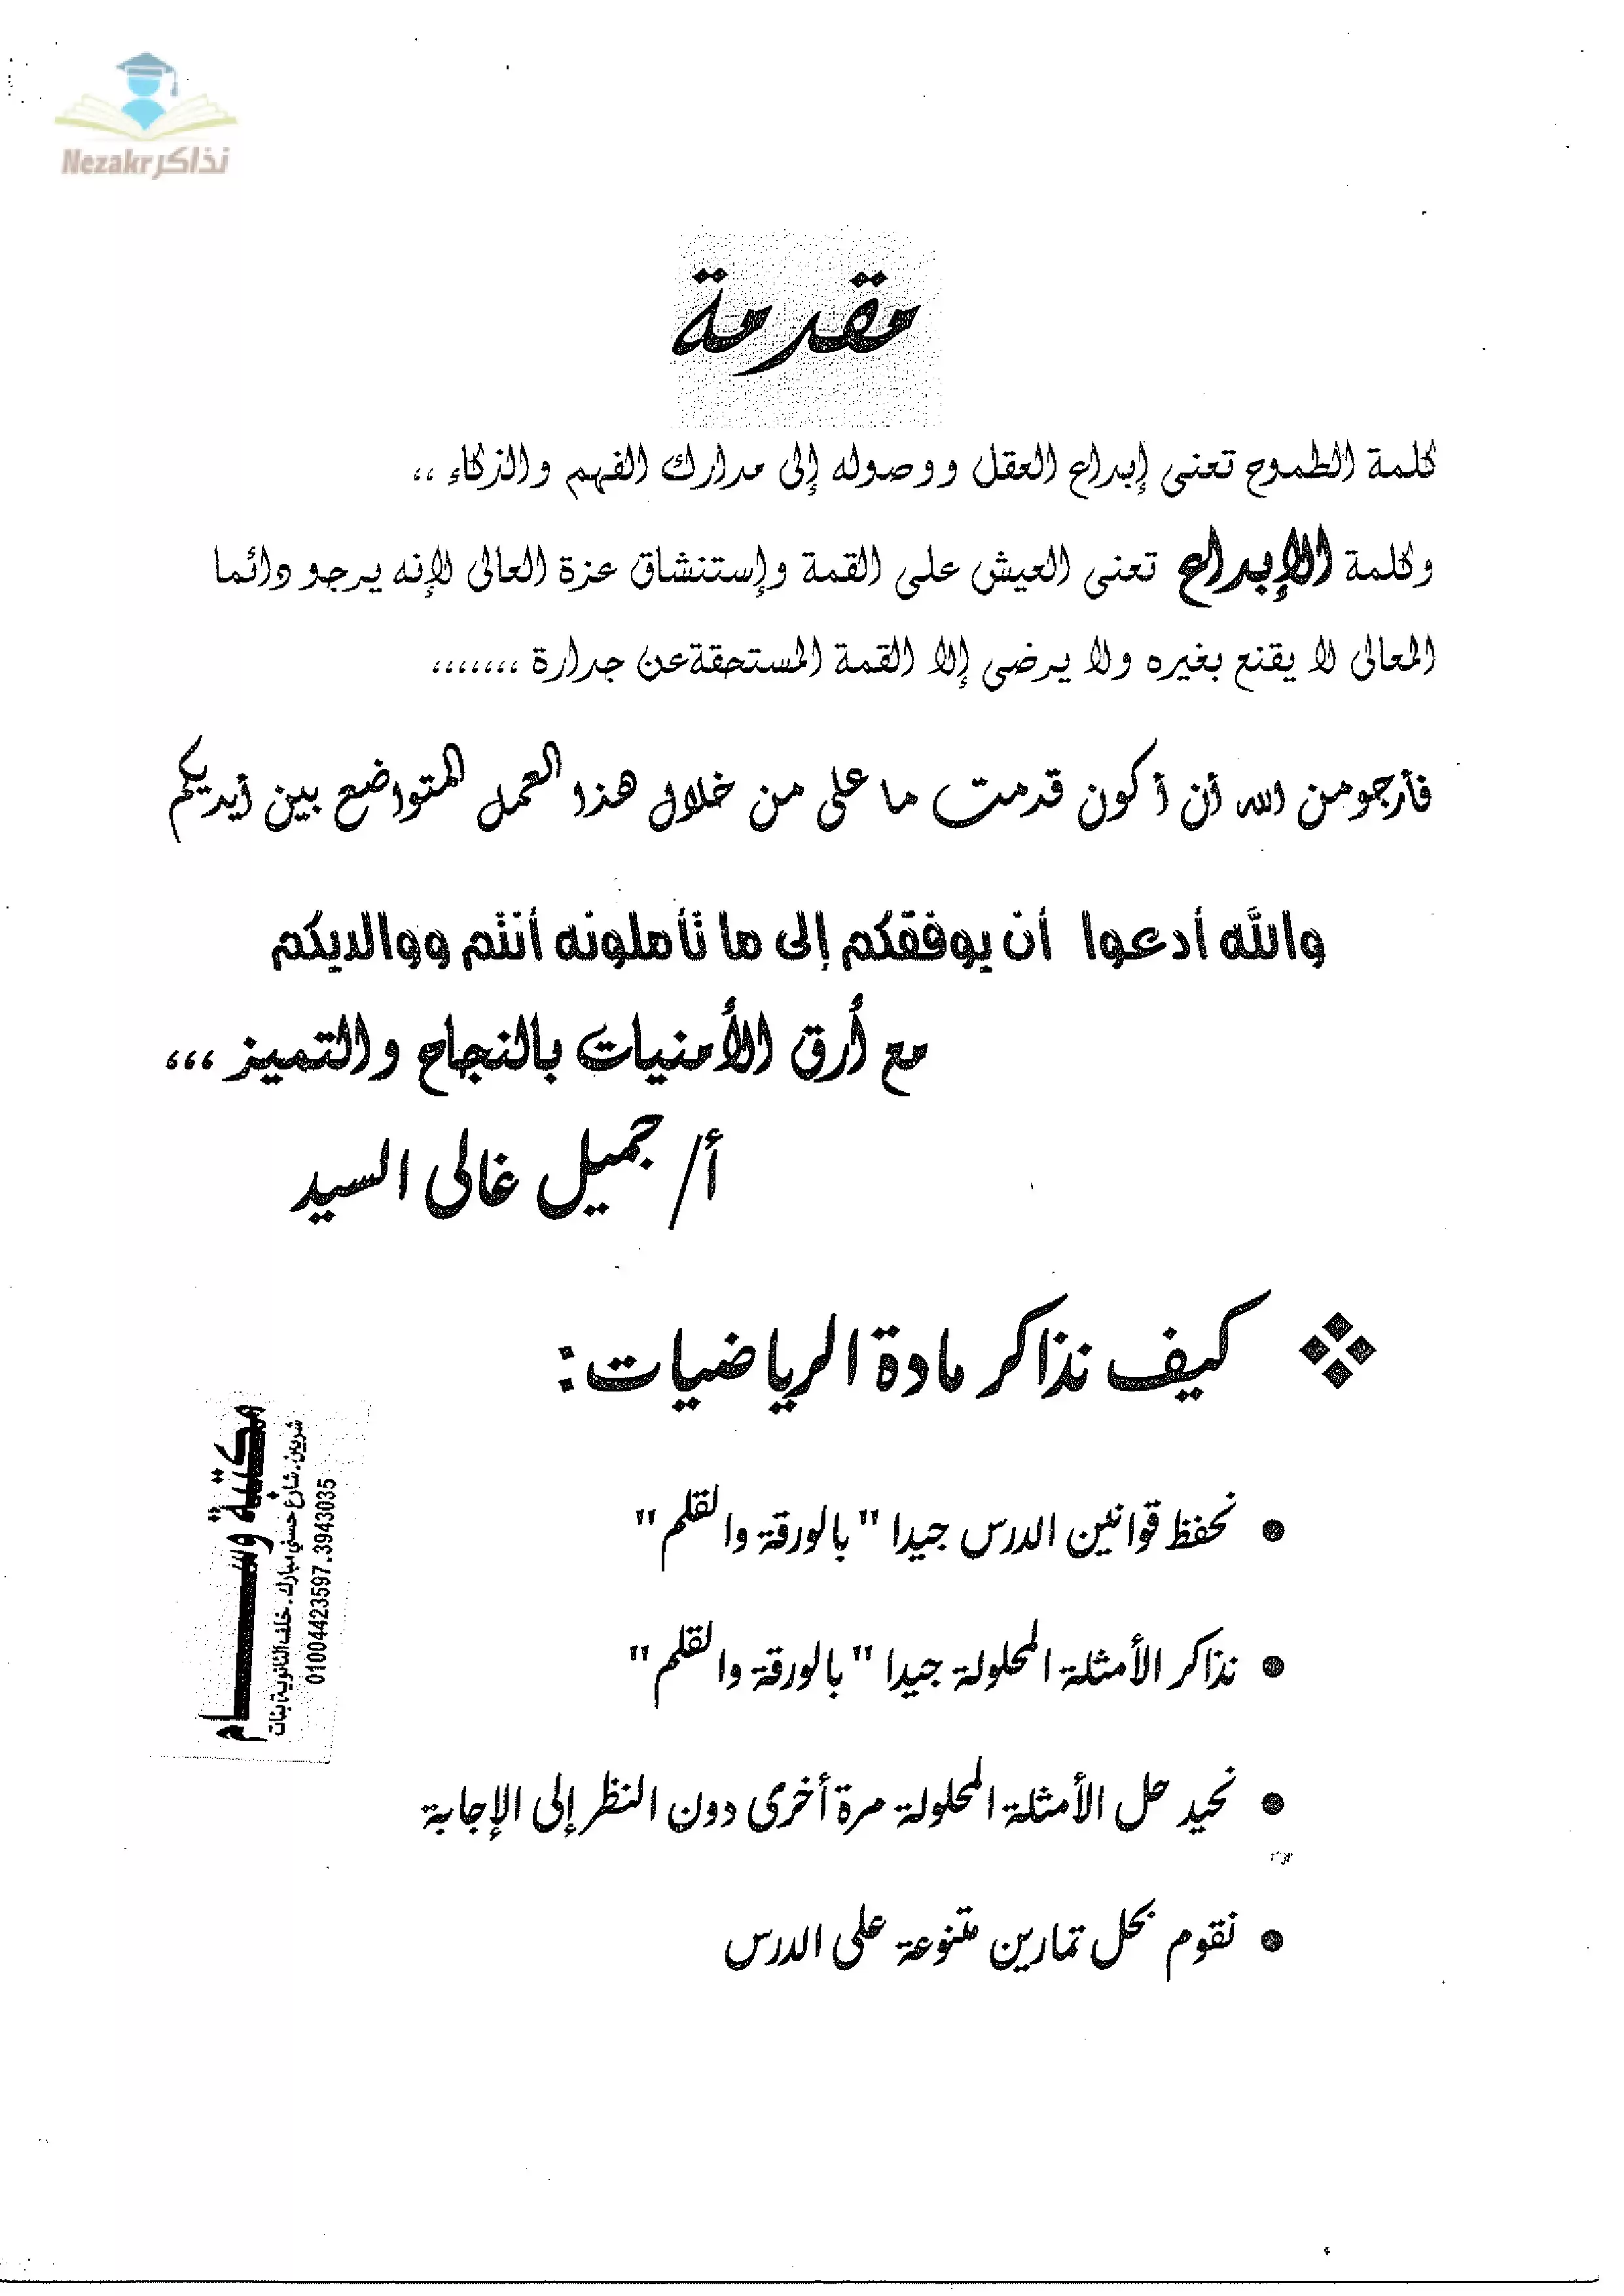 Nezakr نذاكر
مقدمة
كلمة الطموح تعنى إبداع العقل ووصوله إلى مدارك الفهم والذكاء ،،
وكلمة الإبداع تعنى العيش على القمة وإستنشاق عزة العالى لإنه يرجو دائما
المعالى لا يقنع بغيره ولا يرضى إلا القمة المستحقة عن جدارة ،،،،،،،
فأرجو من الله أن أكون قدمت ما على من خلال هذا العمل المتواضع بين أيديكم
والله أدعوا أن يوفقكم إلى ما تأملونه أنتم ووالديكم
مع أرق الأمنيات بالنجاح والتميز ،،،
أ/ جميل غالى السيد
❖ كيف نذاكر مادة الرياضيات:
• نحفظ قوانين الدرس جيدا "بالورقة والقلم"
• نذاكر الأمثلة المحلولة جيدا "بالورقة والقلم"
• نحيد حل الأمثلة المحلولة مرة أخرى دون النظر إلى الإجابة
• نقوم بحل تمارين متنوعة على الدرس
مكتبة وســـــام
شربين ـ شارع حسني مبارك ـ خلف الثانوية بنات
01004423597 ـ 3943035